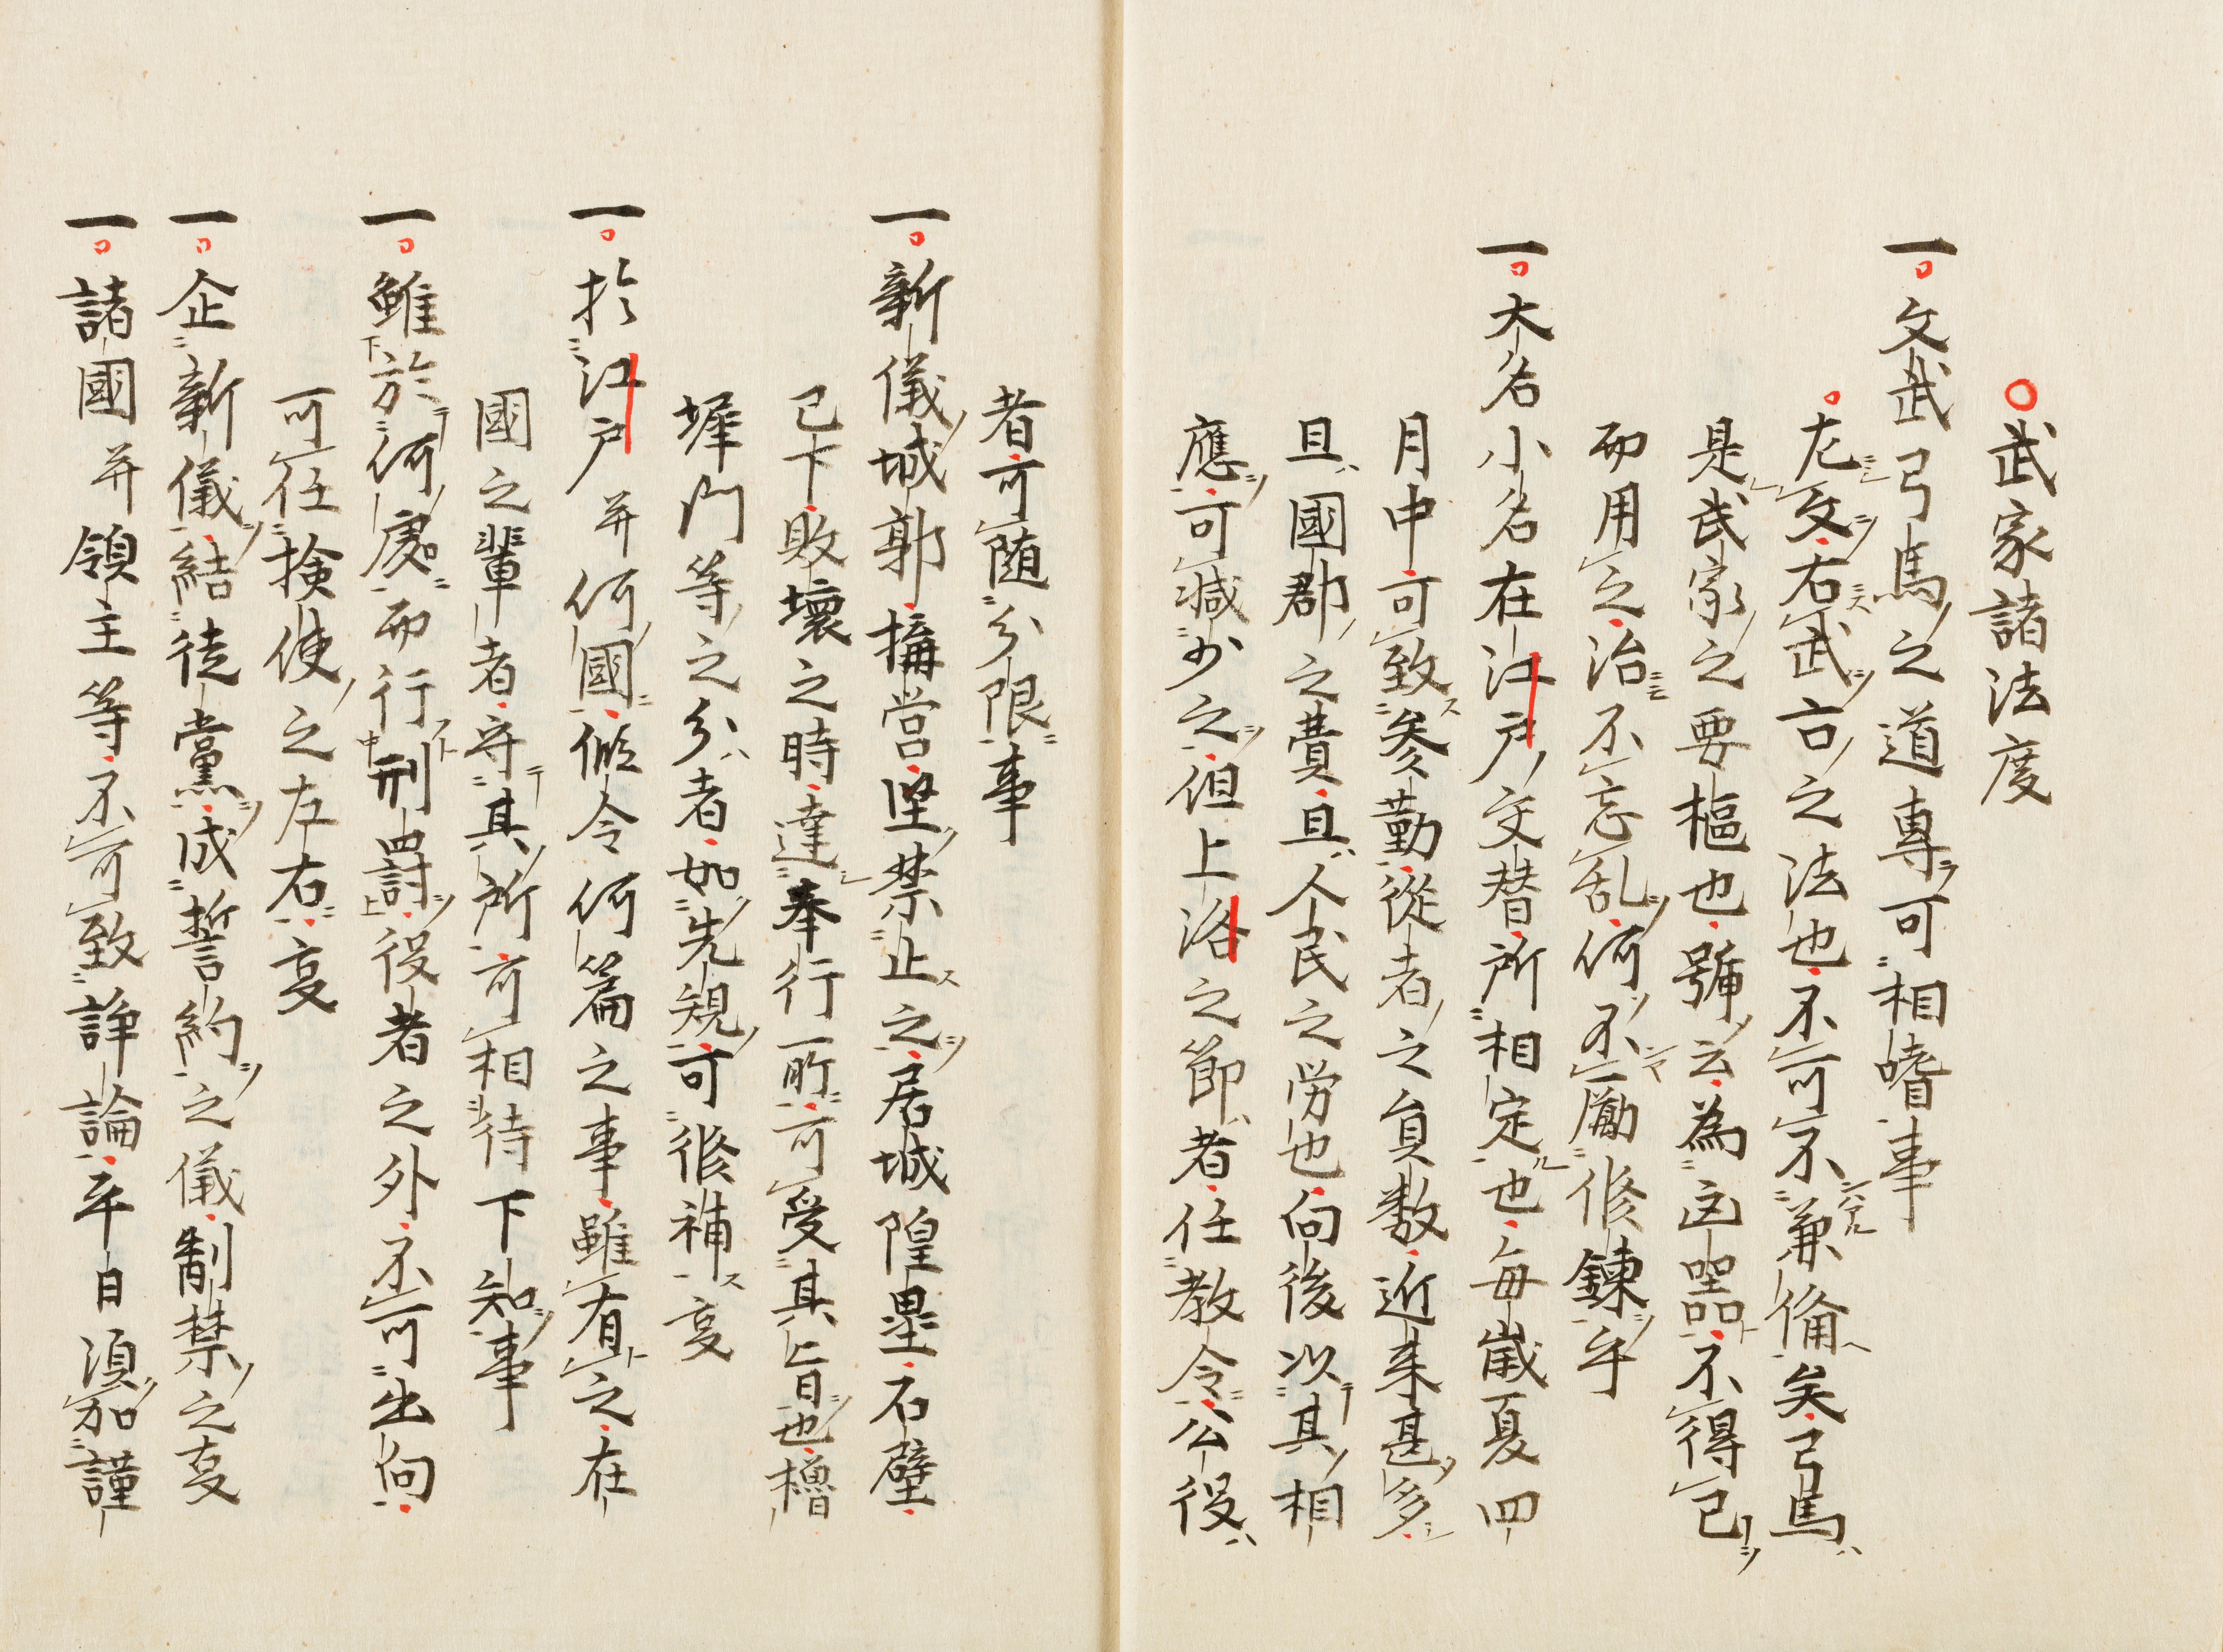 武家諸法度
一文武弓馬之道專可相嗜事
左文右武古之法也不可不兼備矣弓馬
是武家之要樞也號云為凶器不得已
而用之治不忘乱何不勵修鍊乎
一大名小名在江戸交替所相定也毎歳夏四
月中可致参勤從者之員数近来甚多
且國郡之費且人民之労也向後以其相
應可减少之但上洛之節者任教令公役
者可随分限事
一新儀城郭搆営堅禁止之居城隍壘石壁
已下敗壊之時達奉行所可受其旨也櫓
塀門等之分者如先規可修補㕝
一於江戸并何國假令何篇之事雖有之在
國之輩者守其所可相待下知事
一雖於何處而行刑罸役者之外不可出向
可任検使之左右㕝
一企新儀結徒黨成誓約之儀制禁之㕝
一諸國并領主等不可致諍論平日須加謹